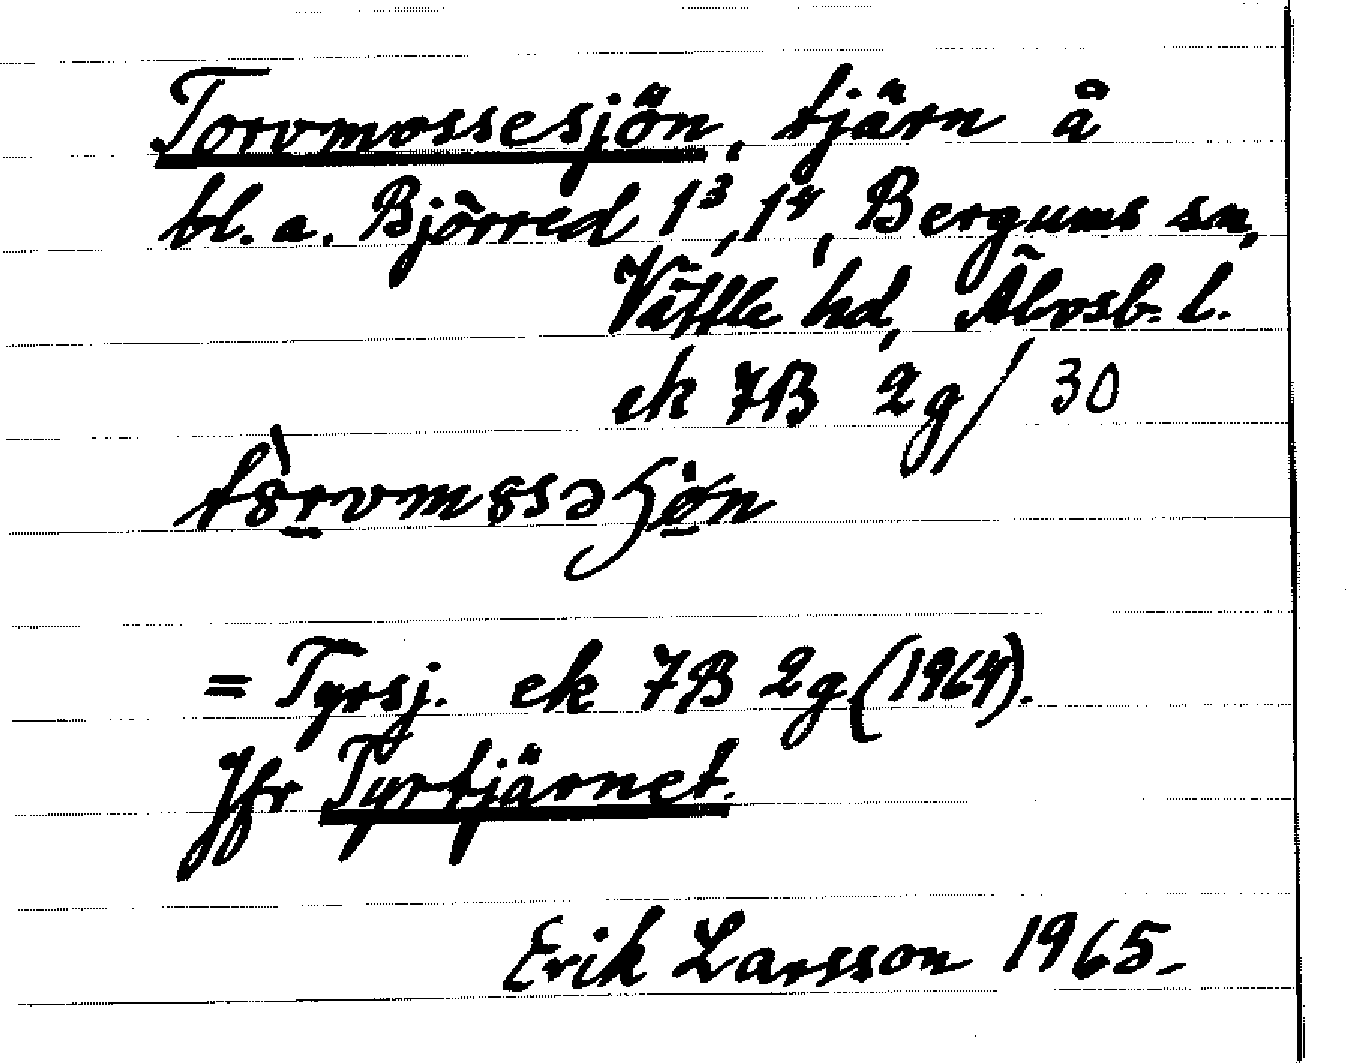 Torvmossesjön, tjärn å
bl. a. Björred 1³, 1⁴, Bergums sn,
Vättle hd, Älvsb. l.
ek 7B 2g/30
= Tyrsj. ek 7B 2g (1964).
Jfr Tyrtjärnet.
Erik Larsson 1965.